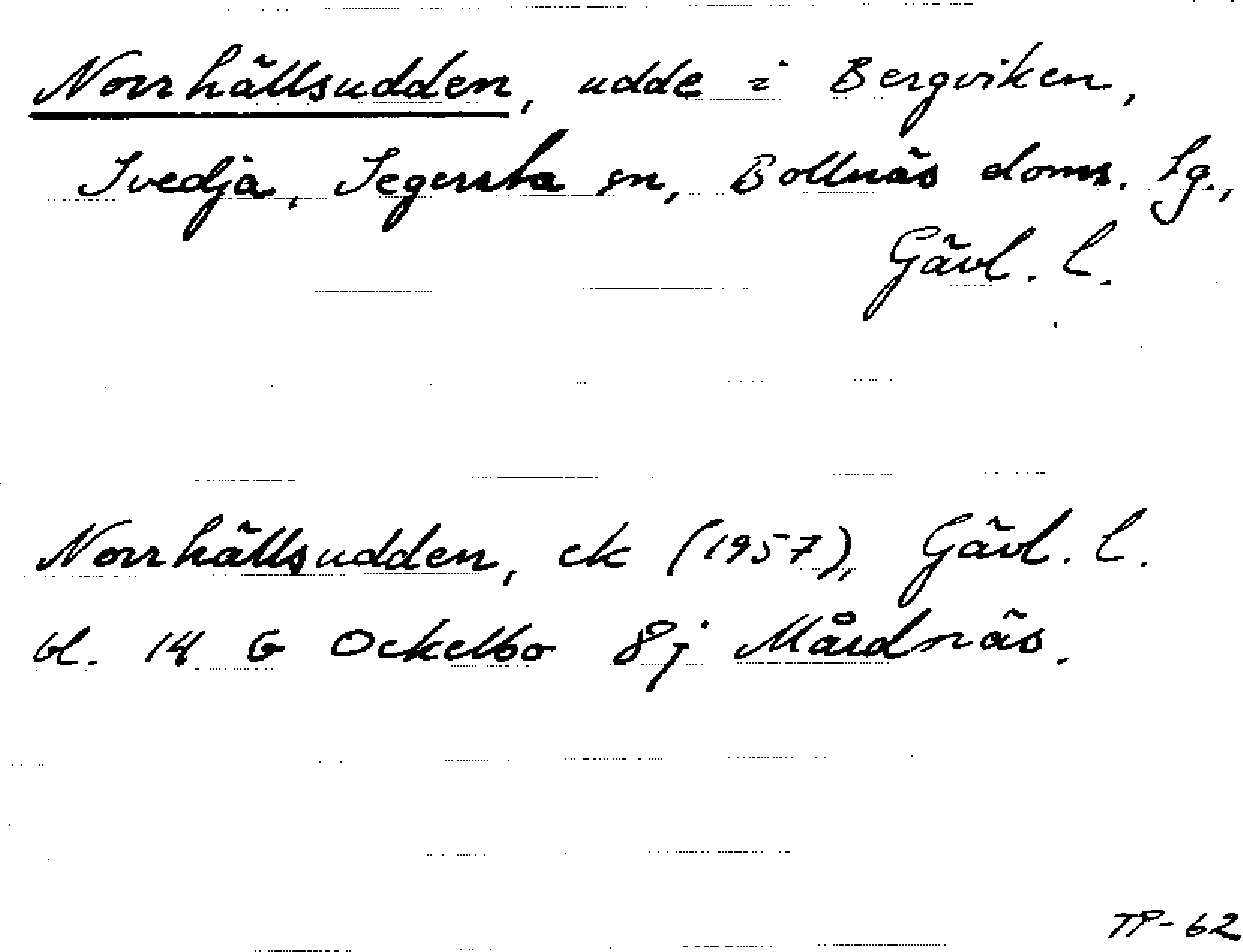 Norrhällsudden, udde i Bergviken,
Svedja, Segersta sn, Bollnäs doms. lg.,
Gävl. l.
Norrhällsudden, ek (1957), Gävl. l.
bl. 14 G Ockelbo 8j Mårdnäs.
TP-62